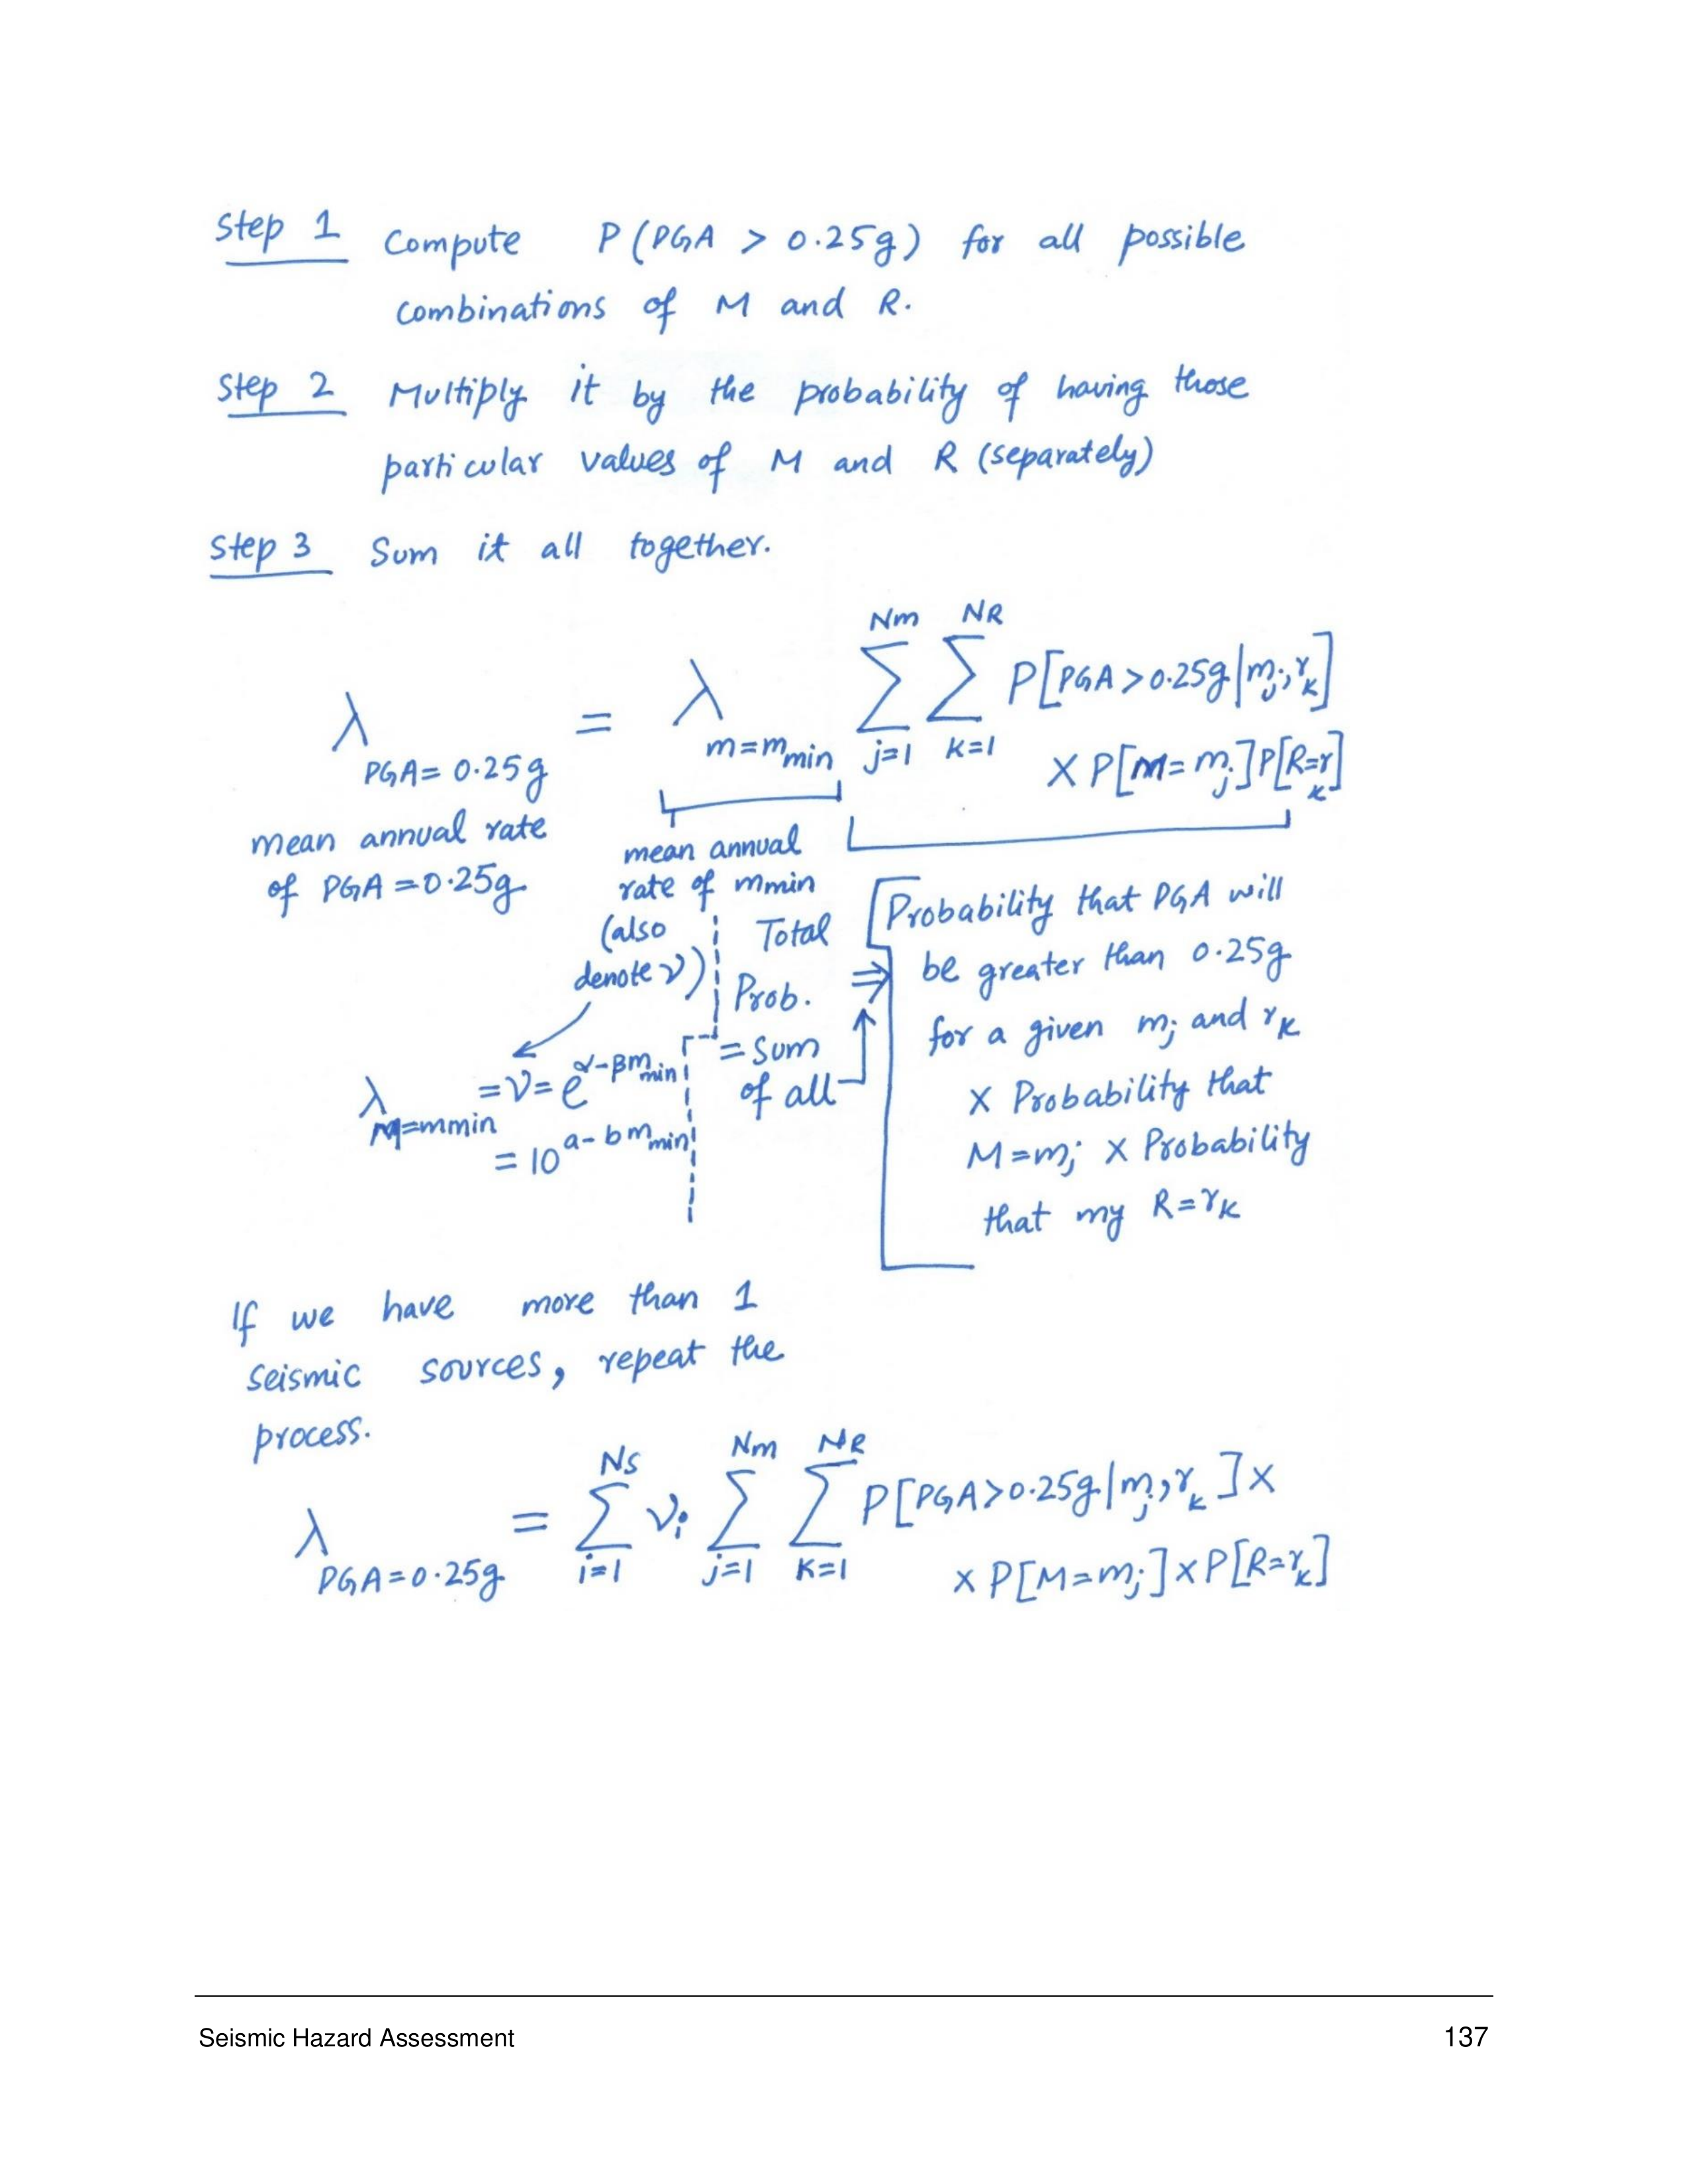 Step 1 Compute P(PGA > 0.25g) for all possible
combinations of M and R.
Step 2 Multiply it by the probability of having those
particular values of M and R (separately)
Step 3 Sum it all together.
λ_{PGA=0.25g} = λ_{m=m_min} \sum_{j=1}^{Nm} \sum_{k=1}^{NR} P[PGA>0.25g|m_j,r_k]
X P[M=m_j]P[R=r_k]
mean annual rate
of PGA=0.25g
mean annual
rate of mmin
(also
denote ν)
λ_{M=mmin} = ν = e^{α-βm_min}
= 10^{a-bm_min}
Total
Prob.
= Sum
of all
⇒
Probability that PGA will
be greater than 0.25g
for a given mj and rK
X Probability that
M=mj X Probability
that my R=rK
If we have more than 1
seismic sources, repeat the
process.
λ_{PGA=0.25g} = \sum_{i=1}^{Ns} ν_i \sum_{j=1}^{Nm} \sum_{K=1}^{NR} P[PGA>0.25g|m_j,r_k] X
X P[M=m_j] X P[R=r_k]
Seismic Hazard Assessment 137